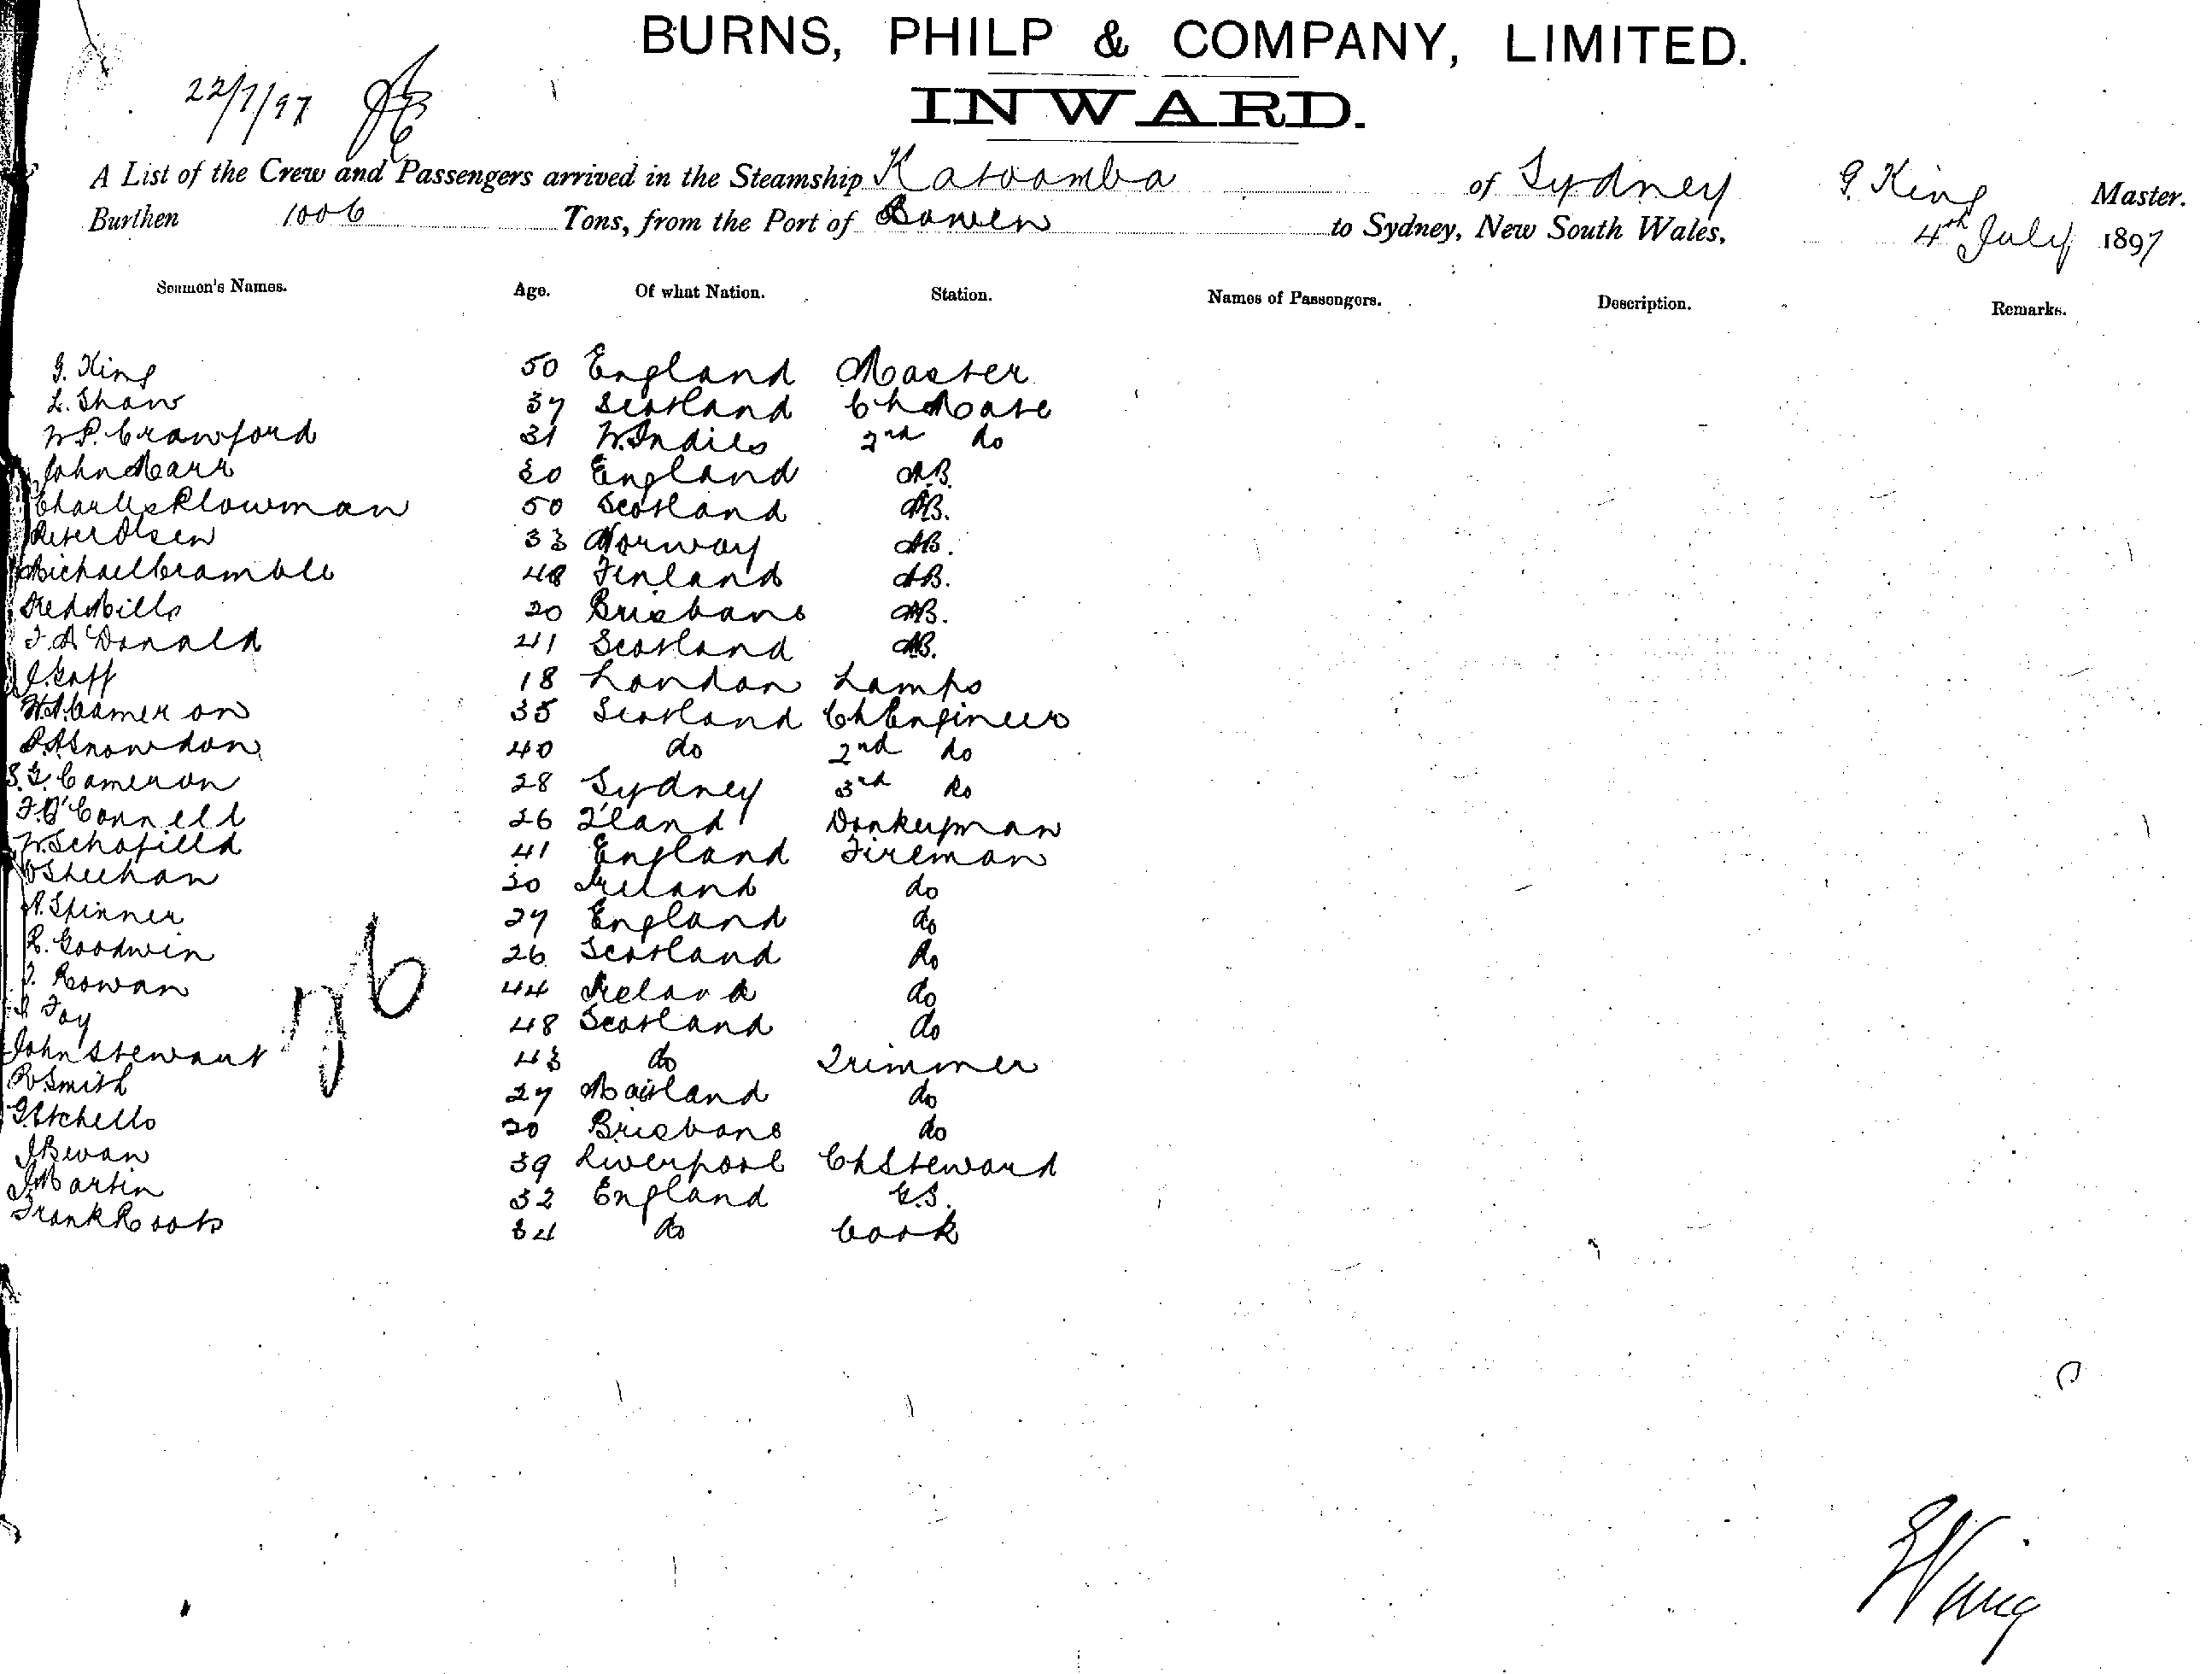 BURNS, PHILP & COMPANY, LIMITED.
22/7/97
INWARD.
A List of the Crew and Passengers arrived in the Steamship Katoomba of Sydney G. King Master.
Burthen 1006 Tons, from the Port of Bowen to Sydney, New South Wales, 4th July 1897
Seamen's Names. Age. Of what Nation. Station. Names of Passengers. Description. Remarks.
G. King 50 England Master
L. Shaw 37 Scotland Ch Mate
W.P. Crawford 31 W. Indies 2nd do
John Marr 30 England A.B.
Charles Plowman 50 Scotland AB.
Peter Olsen 33 Norway AB.
Michael Cramble 48 Finland AB.
Fred Mills 20 Brisbane AB.
F. McDonald 41 Scotland AB.
J. Goff 18 London Lamps
W.A. Cameron 35 Scotland Ch Engineer
Snowdon 40 do 2nd do
S.G. Cameron 28 Sydney 3rd do
F. O'Connell 26 Z'land Donkeyman
W. Schofield 41 England Fireman
Sheehan 30 Ireland do
A. Skinner 27 England do
R. Goodwin 26 Scotland do
J. Rowan 44 Ireland do
Foy 48 Scotland do
John Stewart 43 do Trimmer
R Smith 27 Maitland do
G. Etchells 20 Brisbane do
J Bevan 39 Liverpool Ch Steward
J Martin 32 England G.S.
Frank Roots 34 do Cook
G King